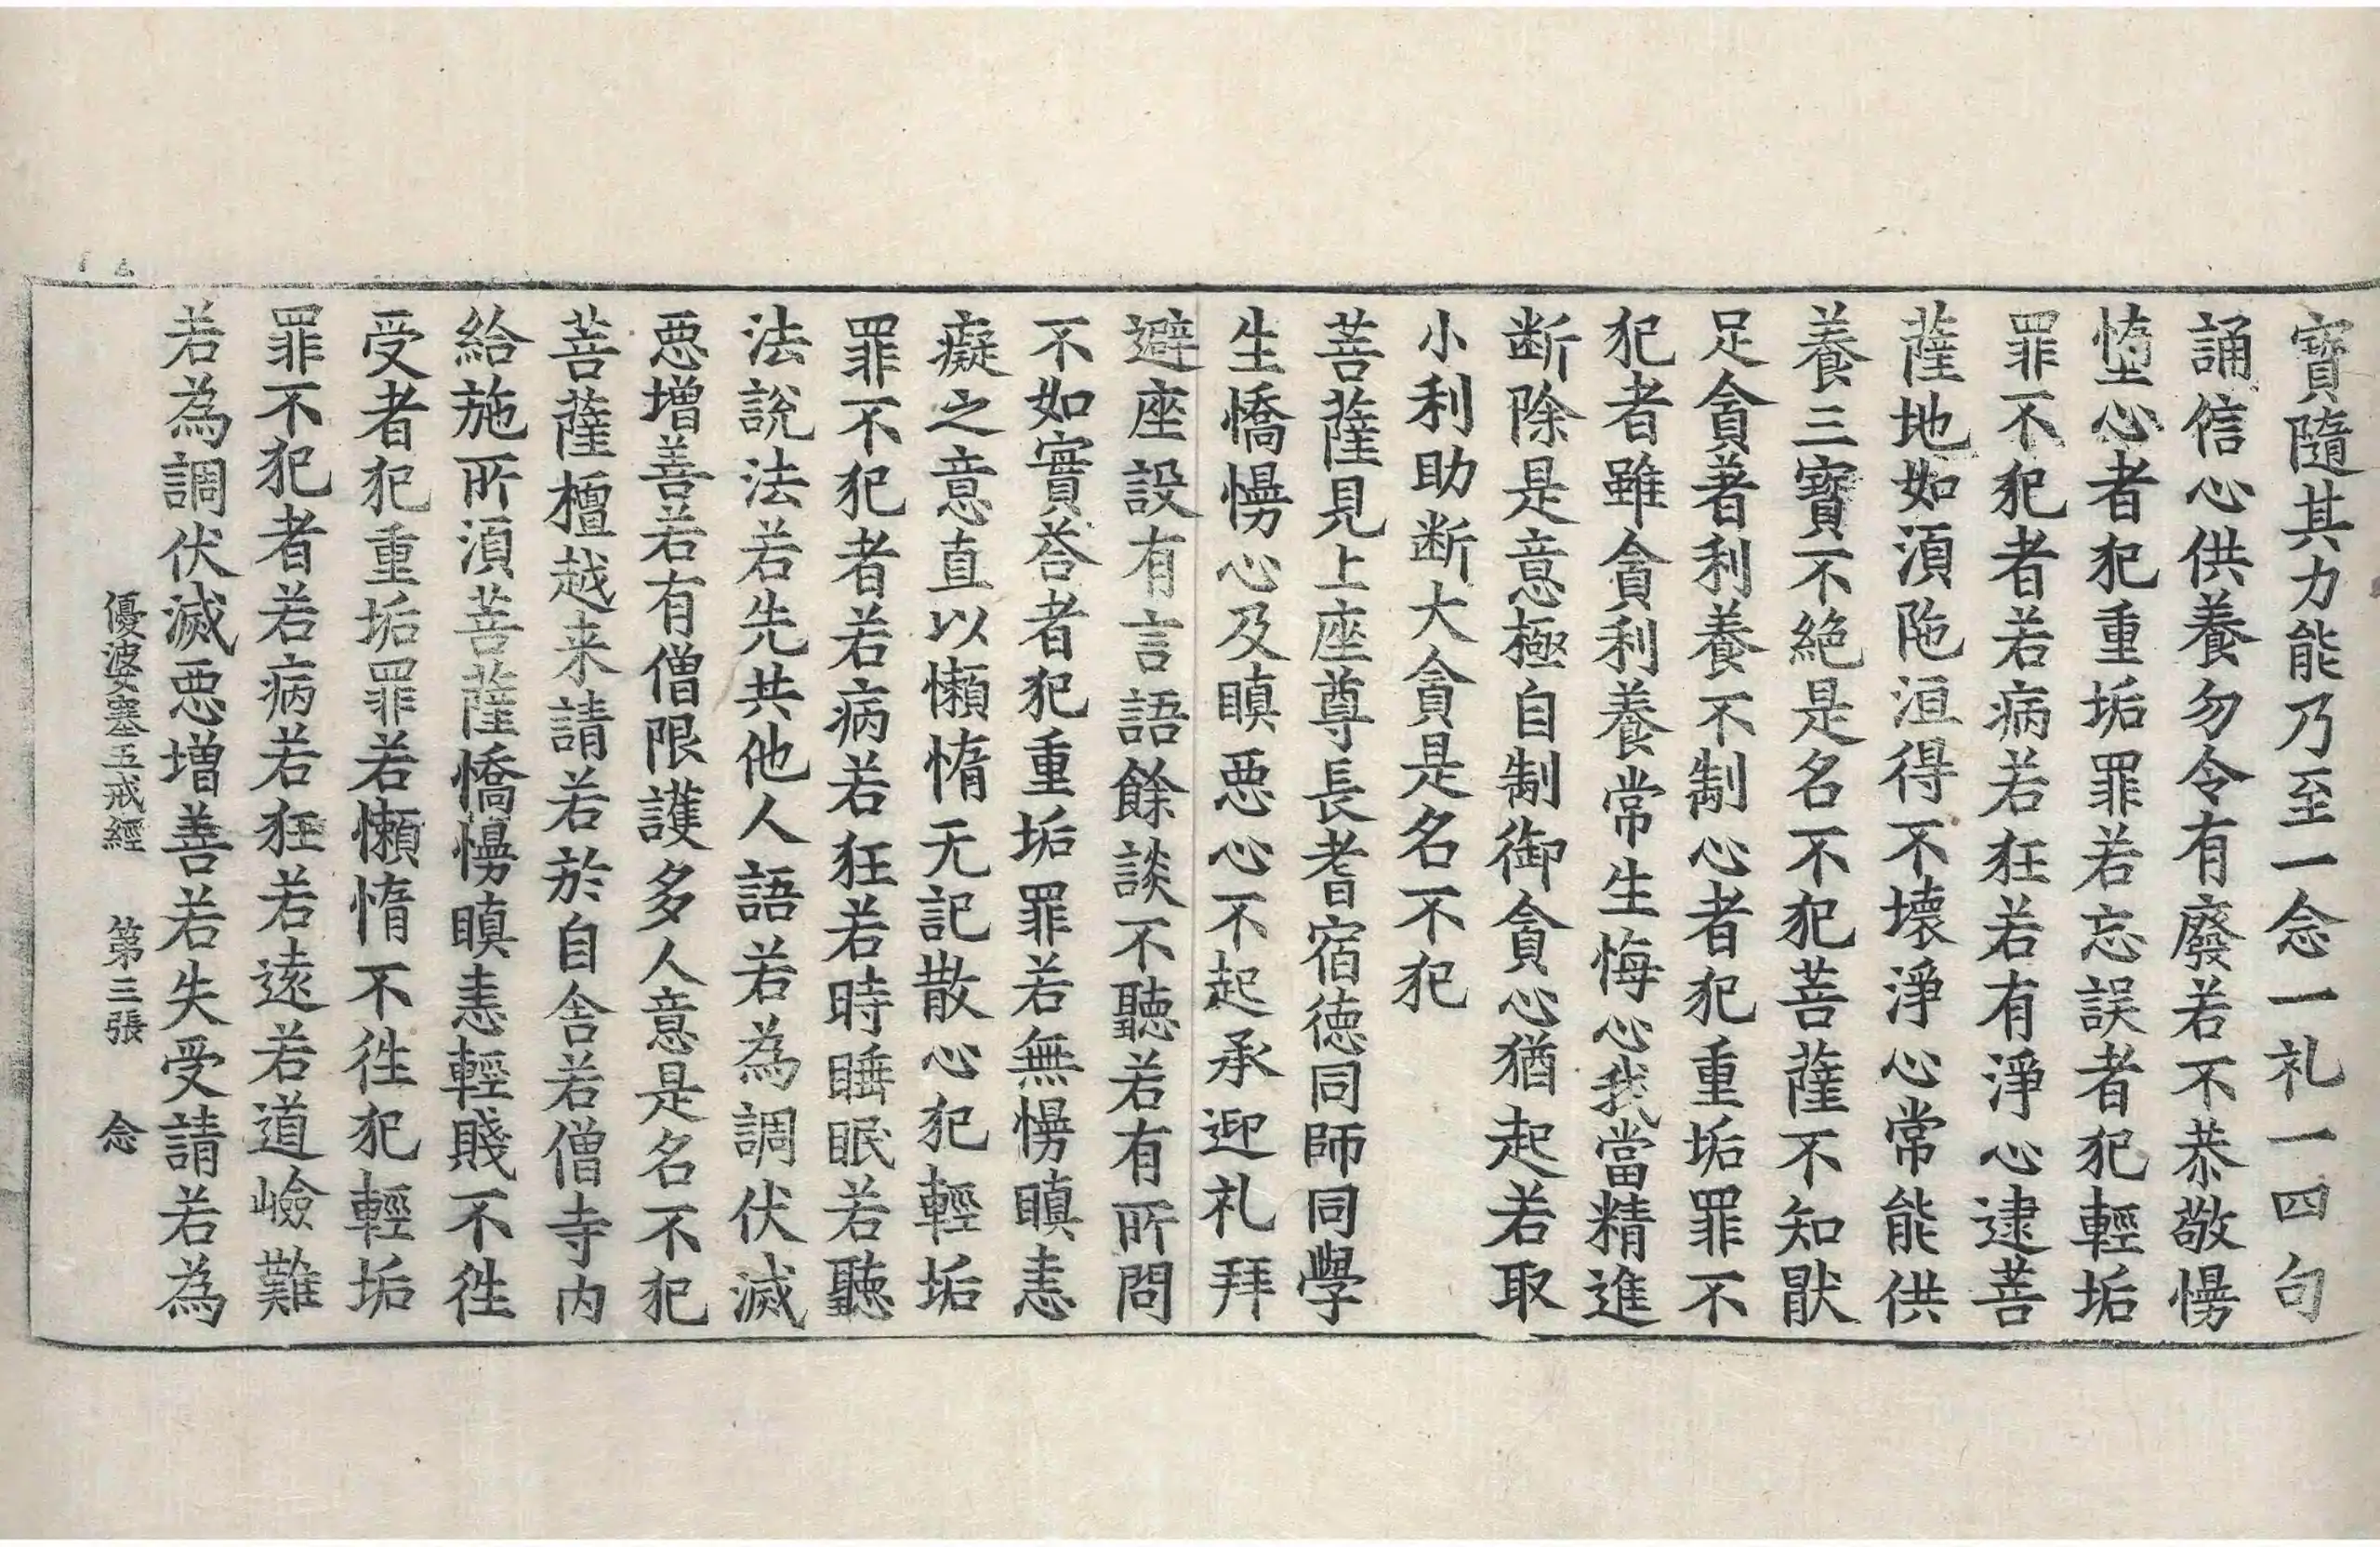 寶隨其力能乃至一念一礼一四句
誦信心供養勿令有廢若不恭敬慢
墮心者犯重垢罪若忘誤者犯輕垢
罪不犯者若病若狂若有淨心逮菩
薩地如湏陁洹得不壞淨心常能供
養三寶不絕是名不犯菩薩不知猒
足貪著利養不制心者犯重垢罪不
犯者雖貪利養常生悔心我當精進
断除是意極自制御貪心猶起若取
小利助断大貪是名不犯
菩薩見上座尊長耆宿德同師同學
生憍慢心及瞋惡心不起承迎礼拜
避座設有言語餘談不聽若有所問
不如實荅者犯重垢罪若無慢瞋恚
癡之意直以懶惰无記散心犯輕垢
罪不犯者若病若狂若時睡眠若聽
法說法若先共他人語若為調伏滅
惡增善若有僧限護多人意是名不犯
菩薩檀越来請若於自舍若僧寺内
給施所湏菩薩憍慢瞋恚輕賤不徃
受者犯重垢罪若懶惰不徃犯輕垢
罪不犯者若病若狂若遠若道嶮難
若為調伏滅惡增善若失受請若為
優波塞五戒經 第三張 念